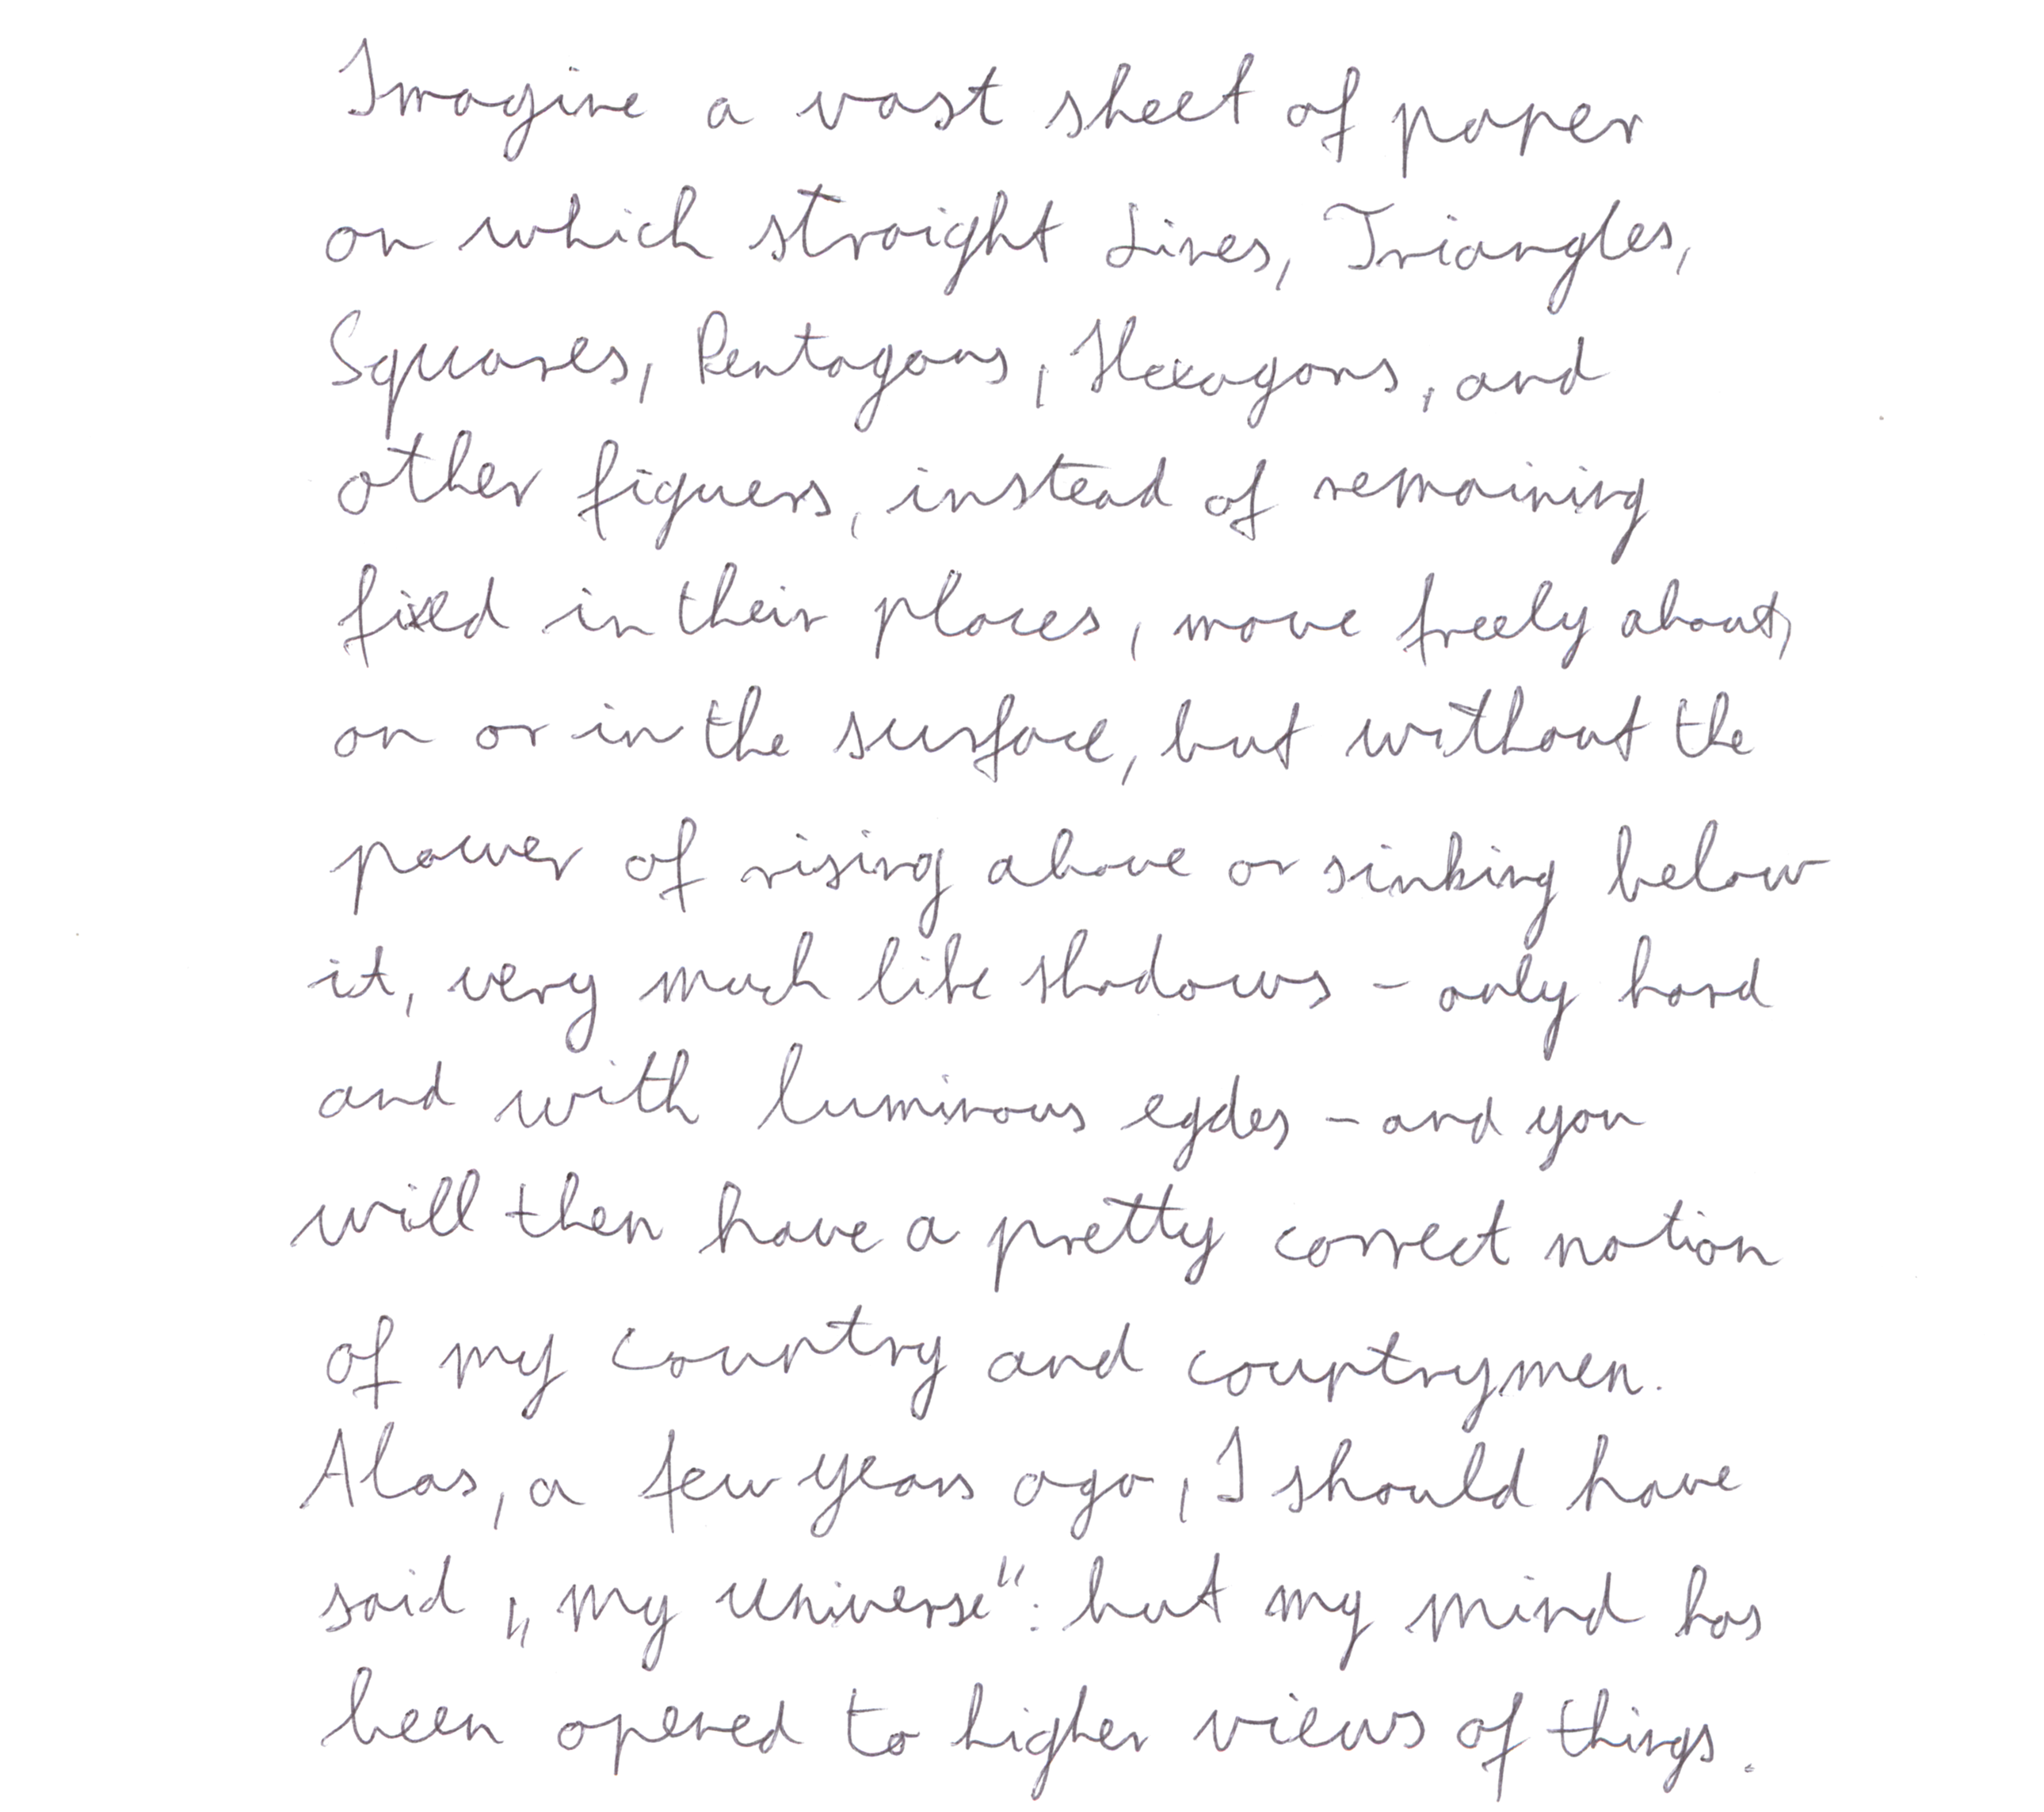 Imagine a vast sheet of paper
on which straight Lines, Triangles,
Squares, Pentagons, Hexagons, and
other figuers, instead of remaining
fixed in their places, move freely about,
on or in the surface, but without the
power of rising above or sinking below
it, very much like shadows - only hard
and with luminous egdes - and you
will then have a pretty correct notion
of my country and countrymen.
Alas, a few years ago, I should have
said „my universe“: but my mind has
been opened to higher views of things.